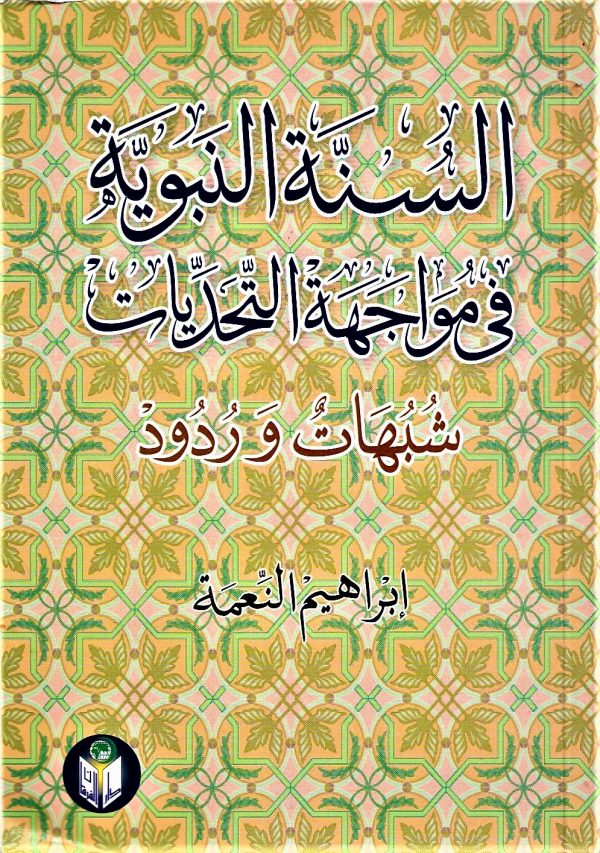 السُنَّة النَبويَّة
في مُوَاجَهَة التَّحَدِّيَات
شُبُهَاتٌ وَرُدُودْ
إبْرَاهِيْم النِّعمَة